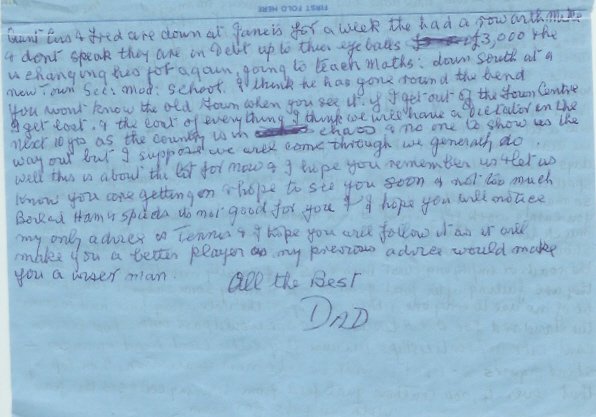 FIRST FOLD HERE
Aunt & Fred are down at Janeis for a week the had a row with
& dont speak they are in debt up to their eyeballs £3,000 & he
is changing his job again, going to teach Maths: down South at a
new Town Sec: Mod: School. I think he has gone round the bend
You wont know the old Town when you see it. if I get out of the Town Centre
I get lost. & the cost of everything I think we will have a Dictator in the
next 10 yrs as the country is in chaos & no one to show us the
way out but I suppose we will come through we generally do.
well this is about the lot for now & I hope you remember us & let us
know you are getting on & hope to see you soon & not too much
Boiled Ham & spuds do not good for you I hope you will notice
my only advice is Tennis & I hope you will follow it as it will
make you a better player as my previous advice would make
you a wiser man.
All the Best
DAD